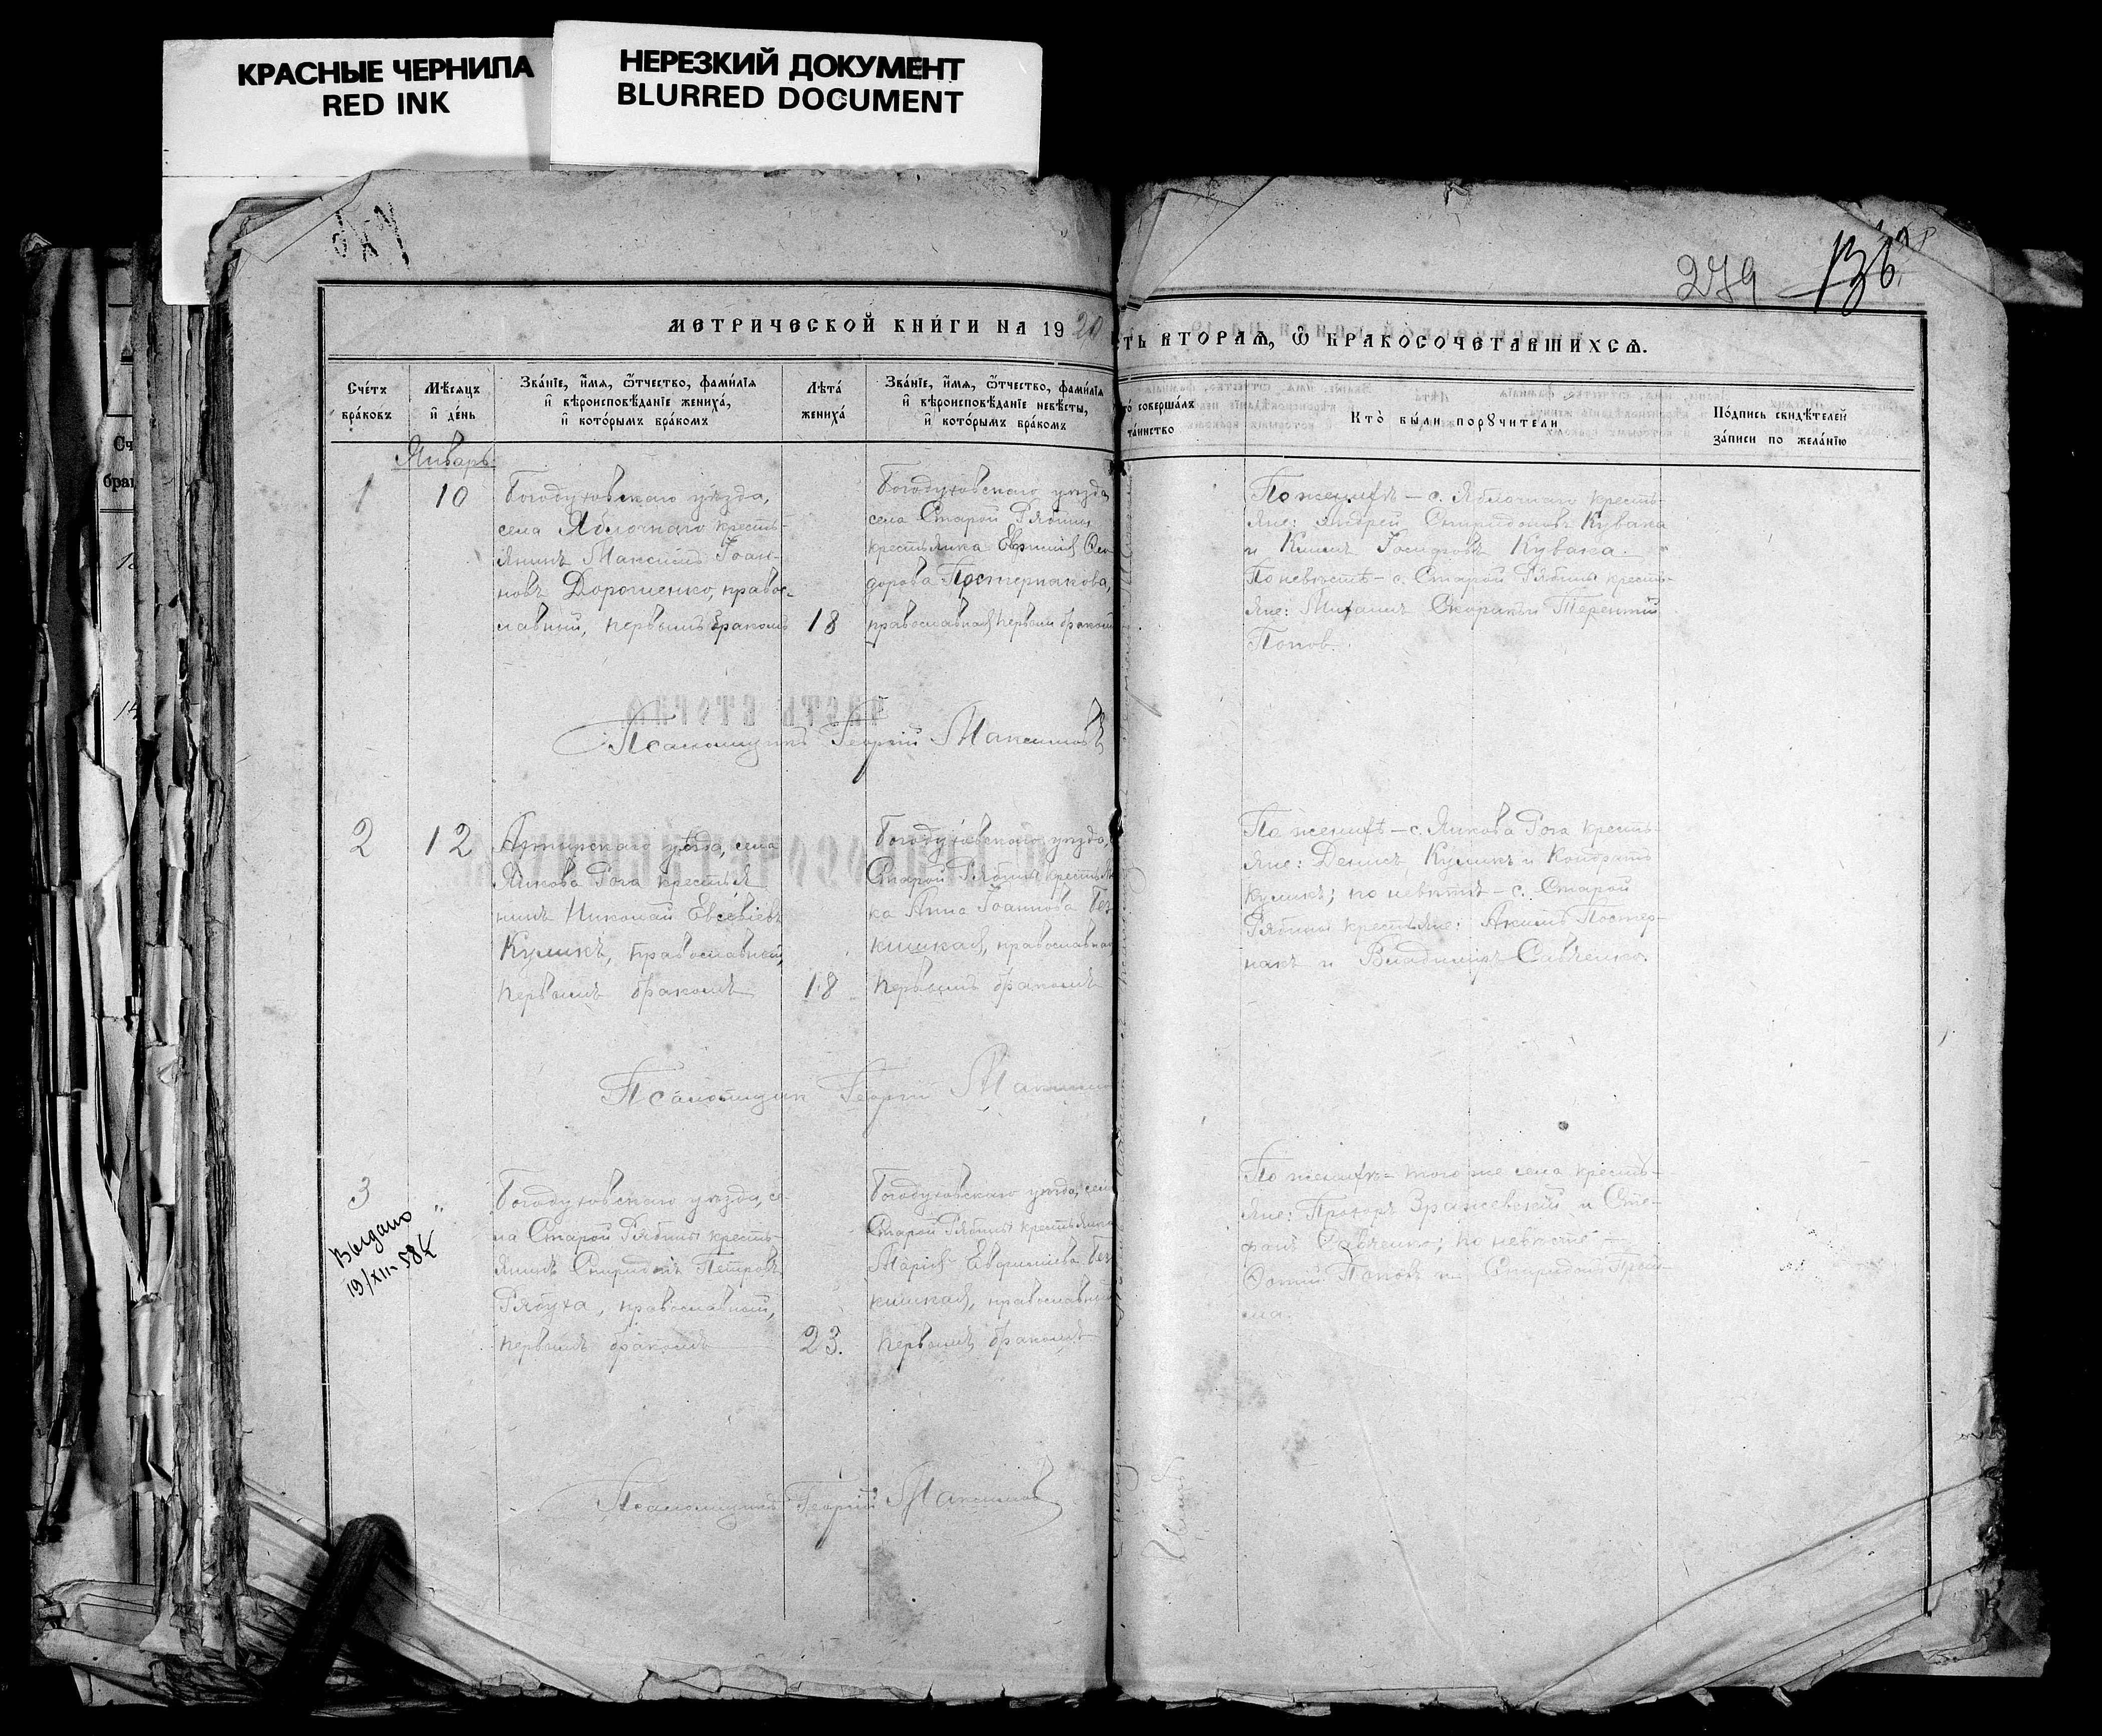 КРАСНЫЕ ЧЕРНИЛА
RED INK
НЕРЕЗКИЙ ДОКУМЕНТ
BLURRED DOCUMENT
279 136
МЕТРИЧЕСКОЙ КНИ́ГИ НА 1920
ТЬ ВТОРАѦ, Ѿ БРАКОСОЧЕТАВШИХСѦ.
Сче́тъ бра́ковъ
Мѣ́сяцъ и де́нь
Зва́нїе, и҆́мя, ѻ҆́тчество, фами́лїя и҆ вѣроисповѣ́данїе жениха̀, и҆ кото́рымъ бра́комъ
Лѣта̀ жениха̀
Зва́нїе, и҆́мя, ѻ҆́тчество, фами́лїя и҆ вѣроисповѣ́данїе невѣ́сты, и҆ кото́рымъ бра́комъ
то̀ соверша́лъ та́инство
Кто̀ бы́ли порꙋчи́тели
По́дпись свидѣ́телей за́писи по жела́нїю
Январь
1
10
Богодуховскаго уѣзда,
села Яблочнаго кресть-
янинъ Максимъ Іоан-
новъ Дорошенко, правос-
лавный, первымъ бракомъ
18
Богодуховскаго уѣзда
села Старой Рябины
крестьянка Ео-
дорова Постернакова,
православная первым браком
По женихѣ – с. Яблочнаго кресть-
яне: Андрей Спиридоновъ Кувака
и Климъ Іосифовъ Кувака.
По невѣстѣ – с. Старой Рябины кресть-
яне: Михаилъ Скорикъ и Терентий
Попов.
Псаломщикъ Георгій Максимовъ
2
12
Ахтырскаго уѣзда, села
Янкова Рога крестья-
нинъ Николай Евсевіевъ
Куликъ, православный,
первымъ бракомъ
18
Богодуховскаго уѣзда,
Старой Рябины крестьян
ка Анна Іоаннова Без
кишкая, православная
первымъ бракомъ
По женихѣ – с. Янкова Рога кресть-
яне: Денисъ Куликъ и Кондратъ
Куликъ; по невѣстѣ – с. Старой
Рябины крестьяне: Акимъ Постер-
накъ и Владиміръ Савченко.
Псаломщик Георгій
3
"
Выдано
19/XII-58г
Богодуховскаго уѣзда, се-
ла Старой Рябины кресть-
янинъ Спиридонъ Петровъ
Рябуха, православный,
первымъ бракомъ
23.
Богодуховскаго уѣзда, села
Старой Рябины крестьянка
Марія Евфиміева Без
кишкая, православный
первымъ бракомъ
По женихѣ – того же села кресть-
яне: Прохоръ Зражевскій и Сте-
фанъ Савченко; по невѣстѣ –
Поповъ и Спиридонъ
Псаломщикъ Георгій Максимовъ